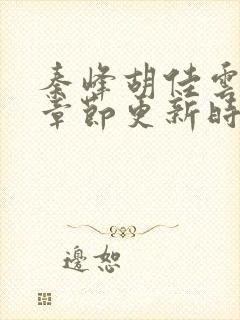 秦峰胡佳雲
章節更新時
邊恕